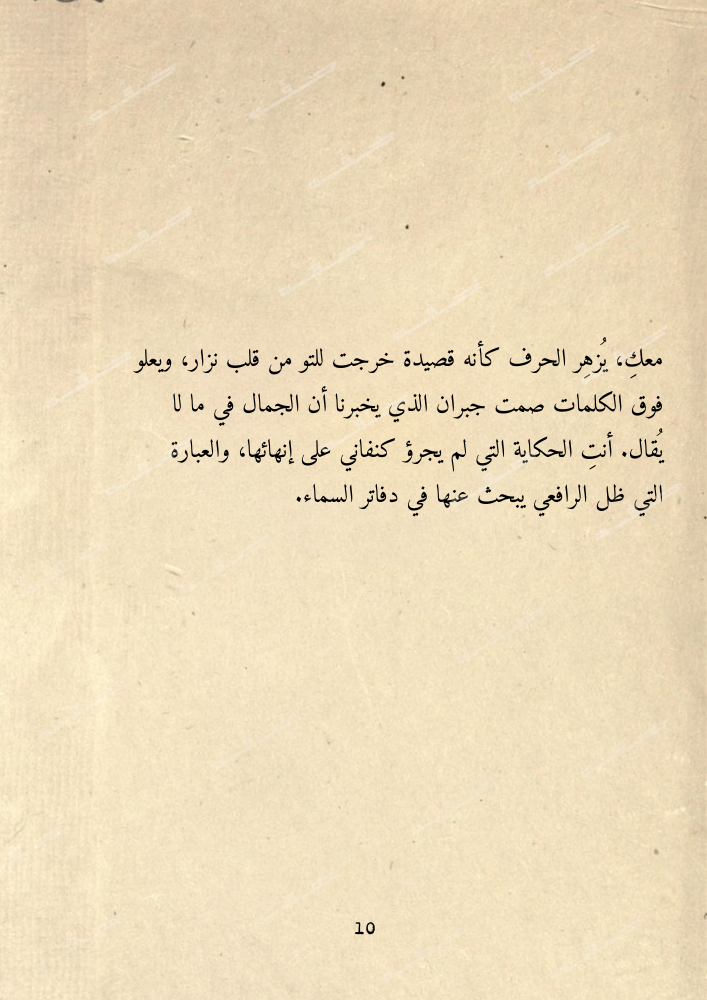 معكِ، يُزهِر الحرف كأنه قصيدة خرجت للتو من قلب نزار، ويعلو
فوق الكلمات صمت جبران الذي يخبرنا أن الجمال في ما لا
يُقال. أنتِ الحكاية التي لم يجرؤ كنفاني على إنهائها، والعبارة
التي ظل الرافعي يبحث عنها في دفاتر السماء.
10